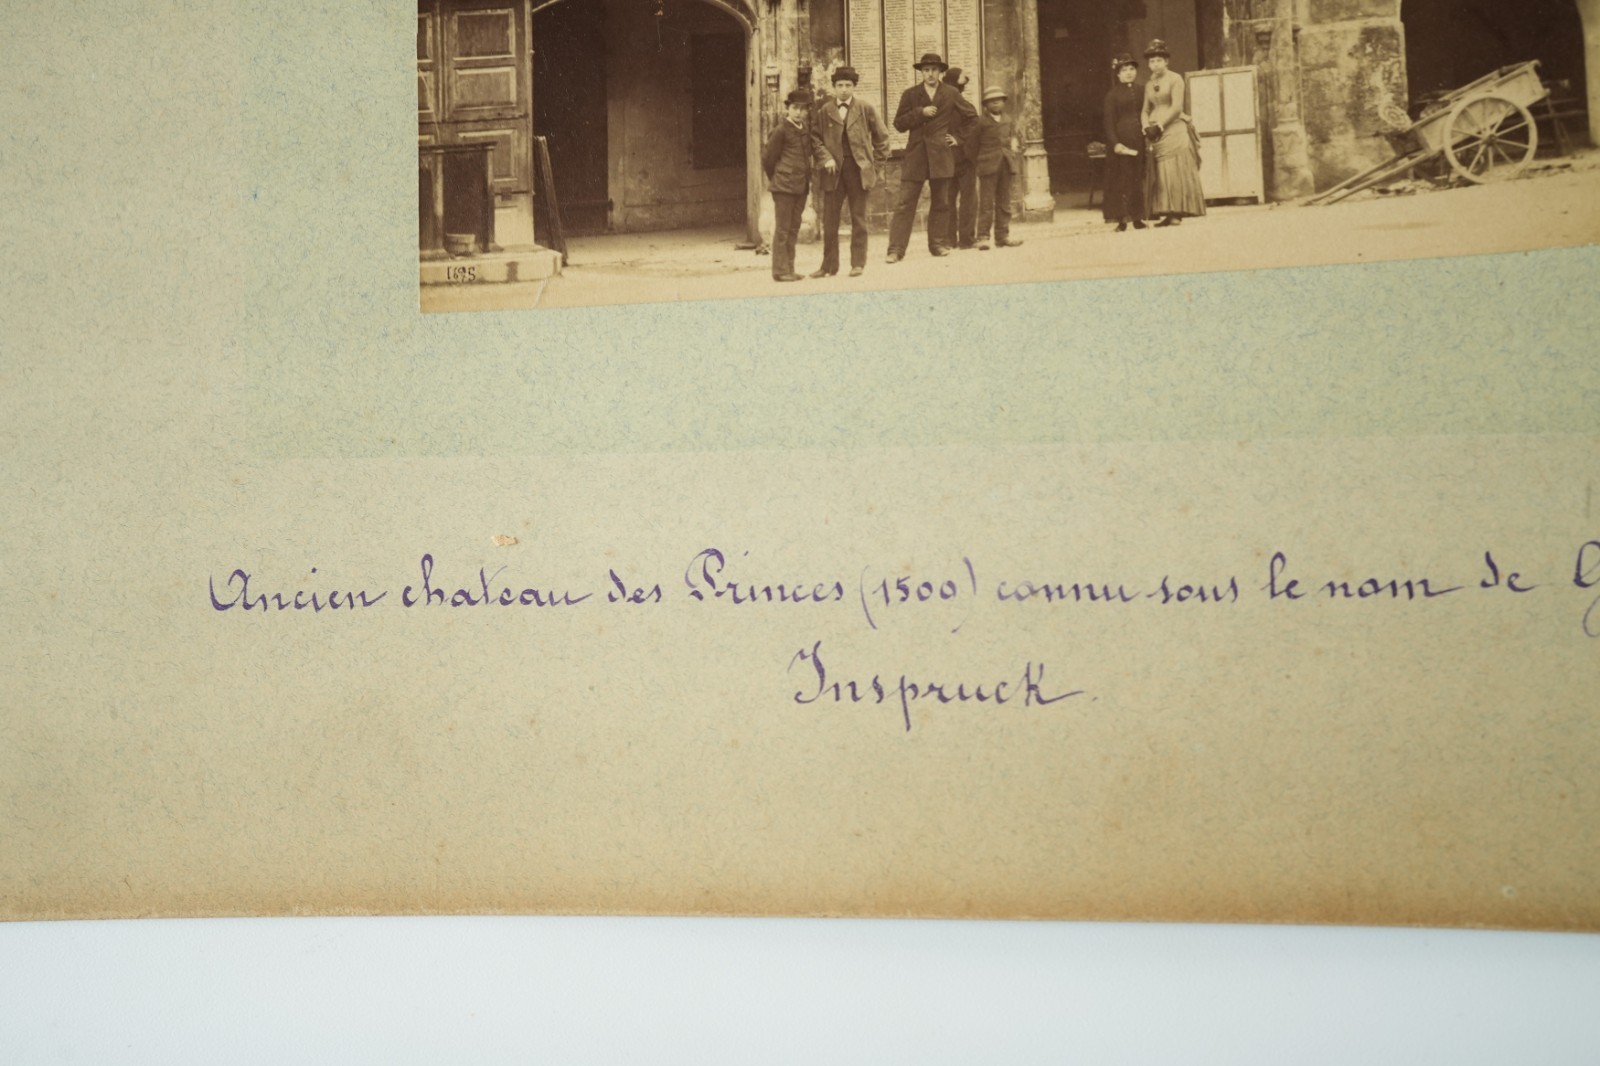 1695
Ancien chateau des Princes (1500) connu sous le nom de G
Inspruck